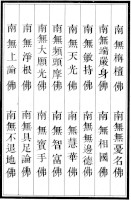 南無栴檀佛
南無無憂名佛
南無端嚴身佛
南無相國佛
南無敏持佛
南無無邊德佛
南無天光佛
南無慧華佛
南無頻頭摩佛
南無智富佛
南無大願光佛
南無寶手佛
南無淨根佛
南無具足論佛
南無上論佛
南無不退地佛